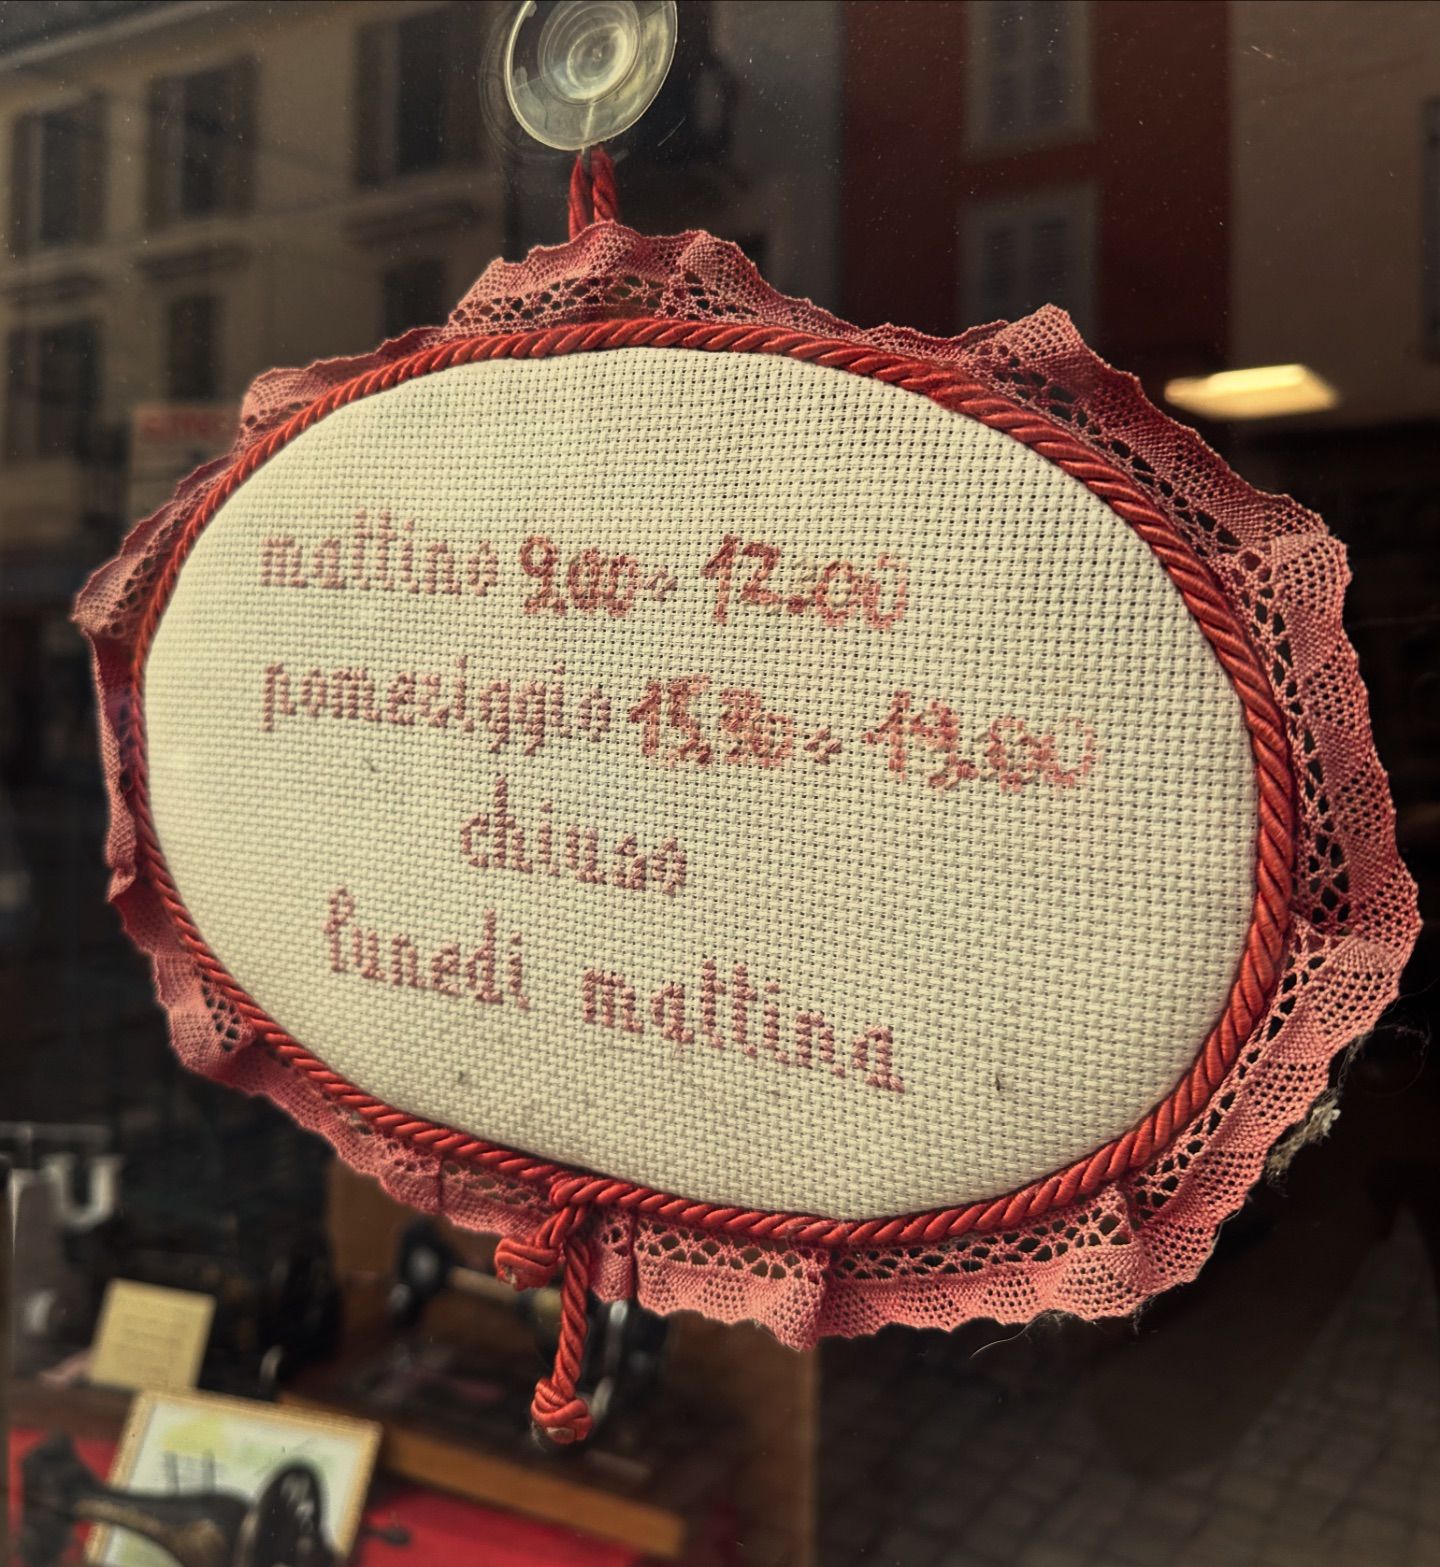 mattino 9,00 » 12.00
pomeriggio 15,30 » 19,00
chiuso
lunedi mattina